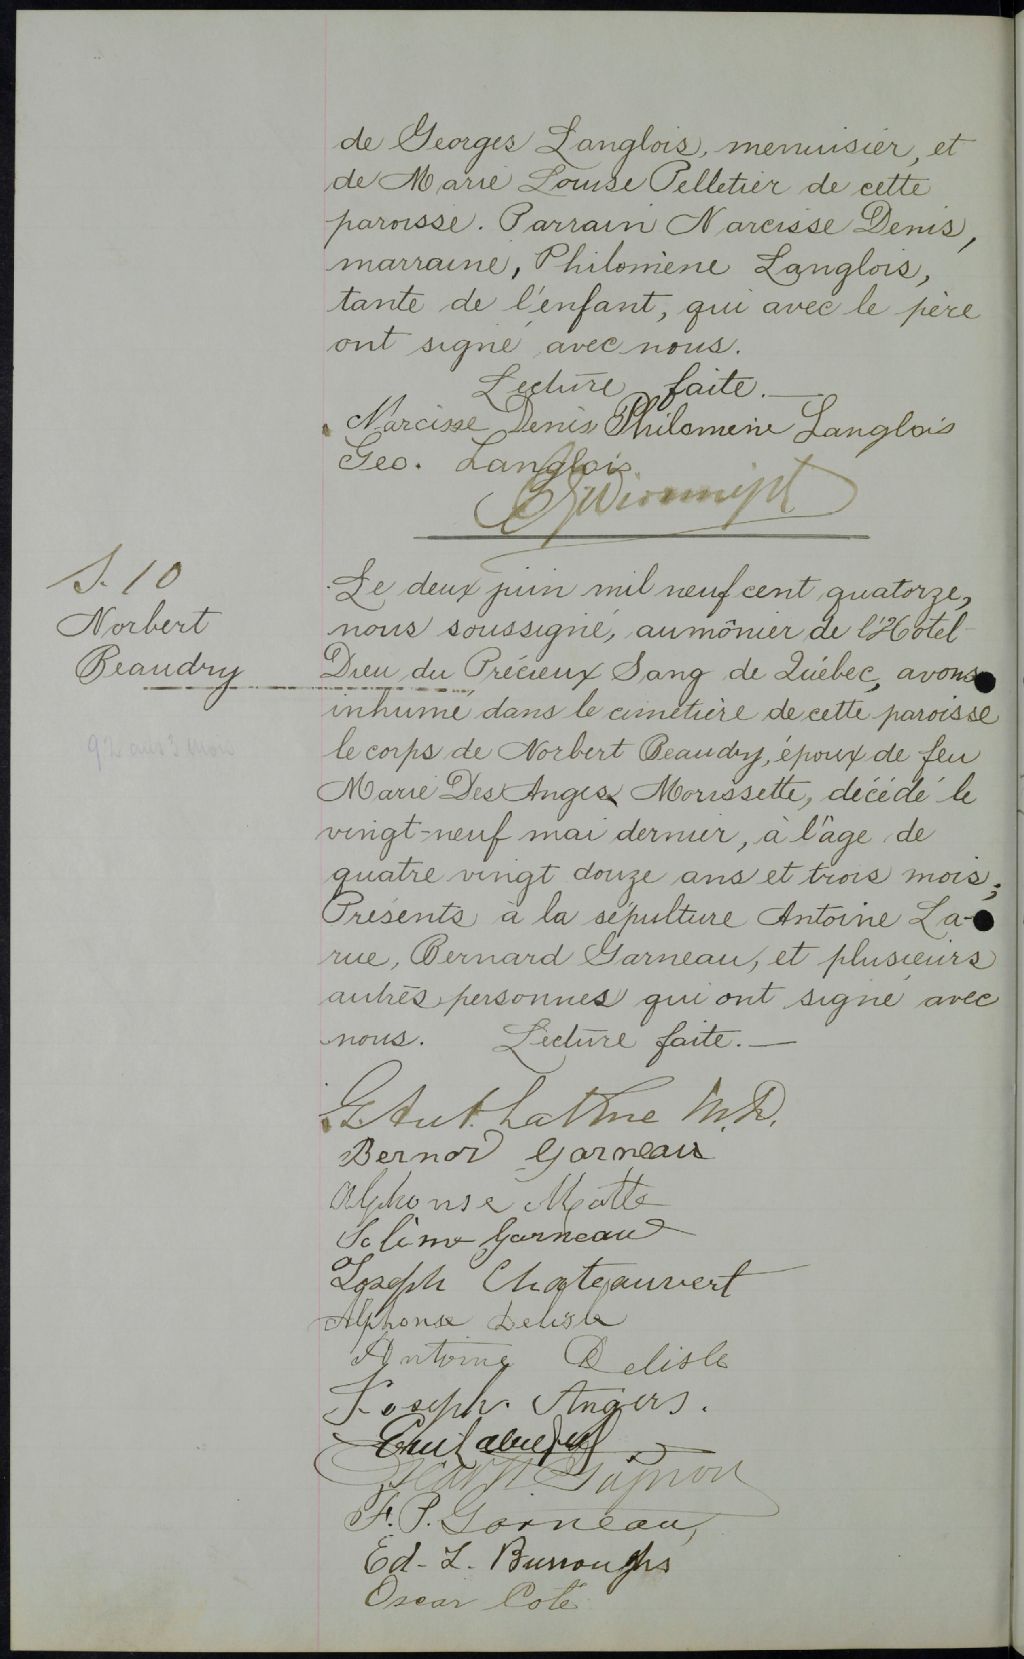 de Georges Langlois, menuisier, et
de Marie Louise Pelletier de cette
paroisse. Parrain Narcisse Denis,
marraine, Philomène Langlois,
tante de l'enfant, qui avec le père
ont signé avec nous.
Lecture faite. —
Narcisse Denis Philomène Langlois
Geo. Langlois
S. 10
Norbert
Beaudry
92 ans 3 mois
Le deux juin mil neuf cent quatorze,
nous soussigné, aumônier de l'Hôtel-
Dieu du Précieux Sang de Québec, avons
inhumé dans le cimetière de cette paroisse
le corps de Norbert Beaudry, époux de feu
Marie Des Anges Morissette, décédé le
vingt-neuf mai dernier, à l'âge de
quatre vingt douze ans et trois mois;
Présents à la sépulture Antoine La-
rue, Bernard Garneau, et plusieurs
autres personnes qui ont signé avec
nous. Lecture faite. —
G. Ant. LaRue M.D.
Bernard Garneau
Alphonse Matte
Garneau
Joseph Chateauvert
Alphonse Delisle
Antoine Delisle
Joseph Angers.
Gagnon
F. P. Garneau,
Ed. L. Burroughs
Oscar Coté